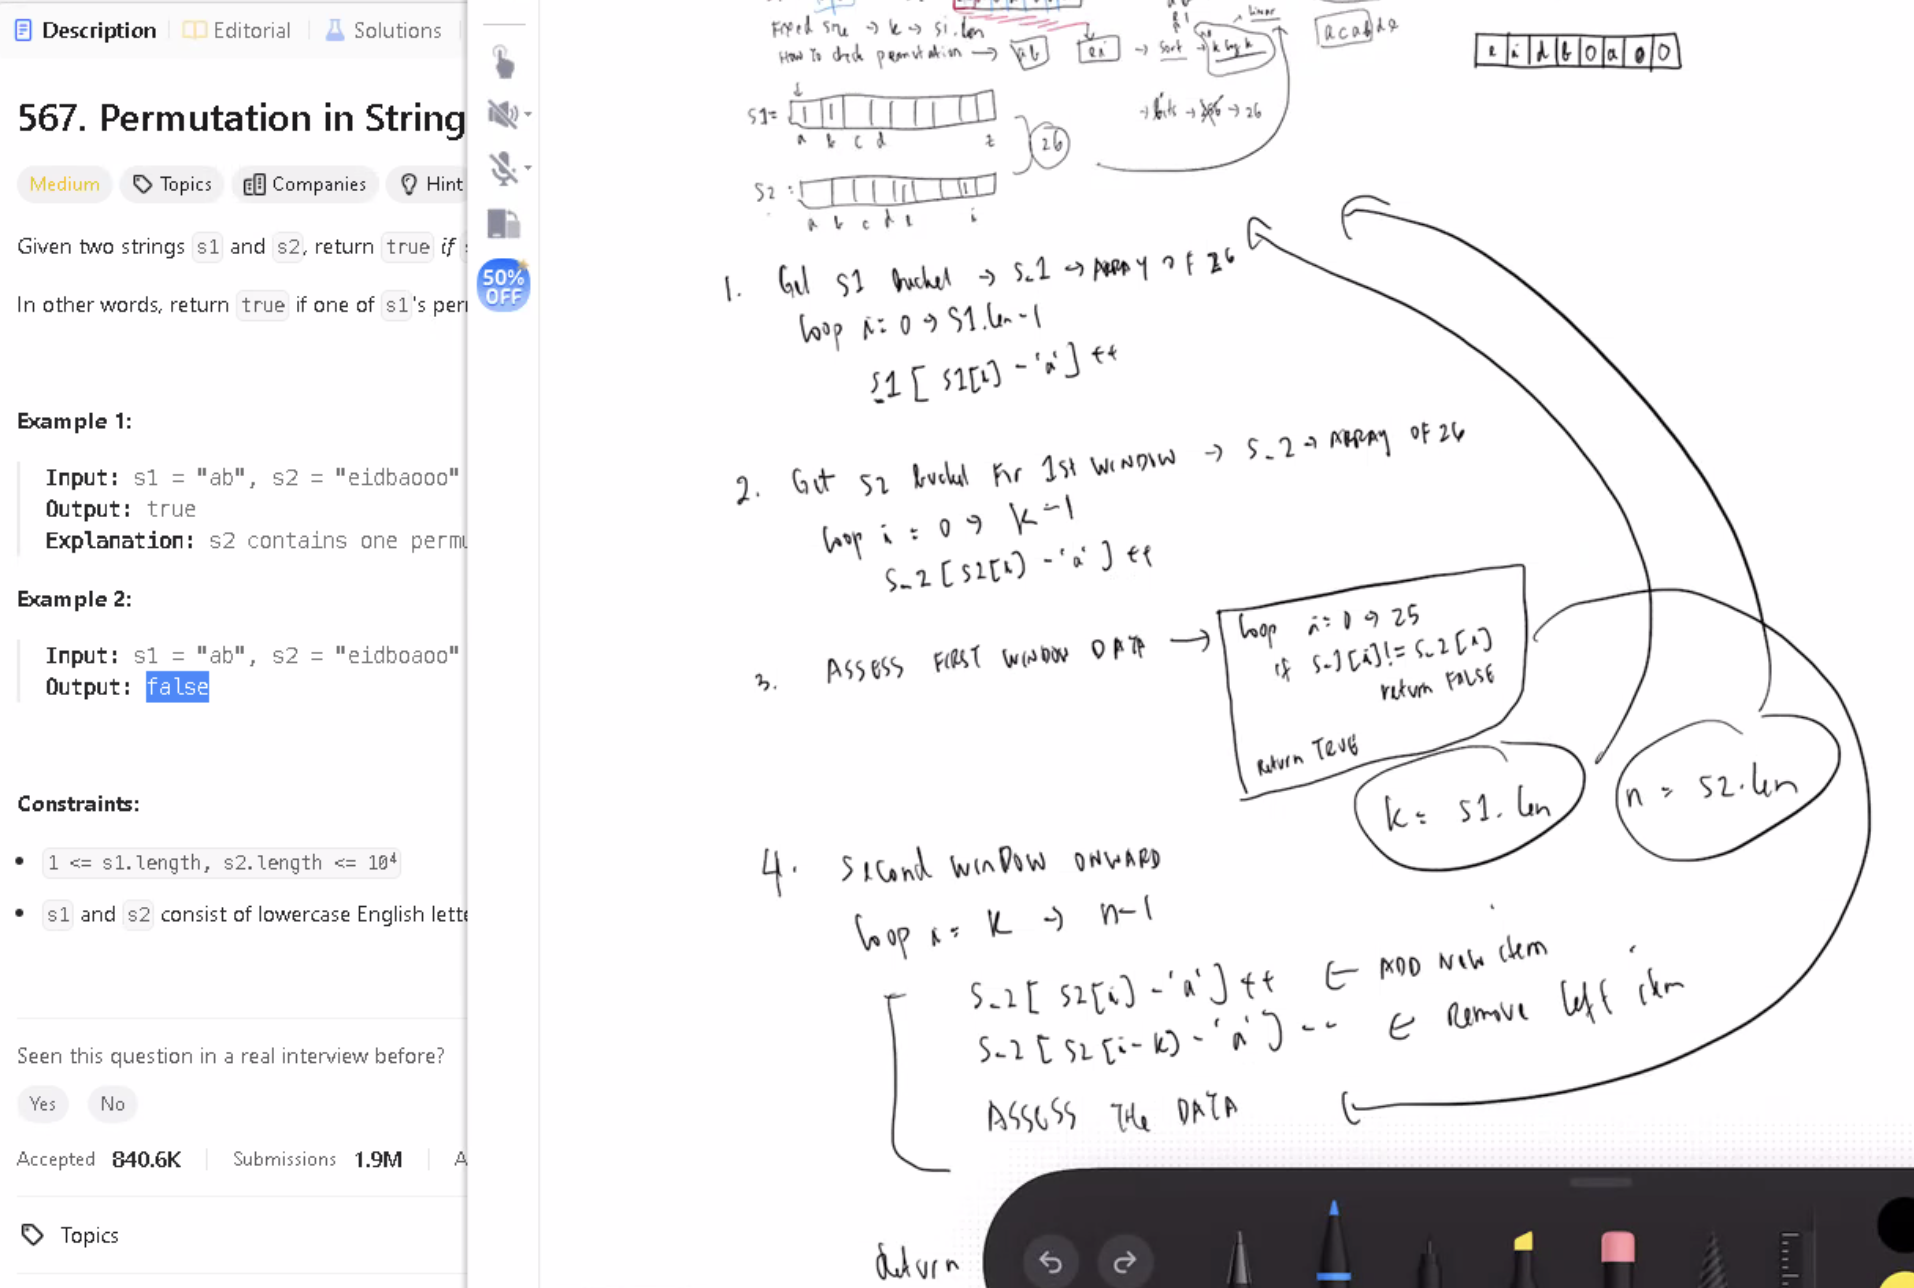 Description
Editorial
Solutions
567. Permutation in String
Medium
Topics
Companies
Hint
Given two strings s1 and s2, return true if
In other words, return true if one of s1's per
Example 1:
Input: s1 = "ab", s2 = "eidbaooo"
Output: true
Explanation: s2 contains one perm
Example 2:
Input: s1 = "ab", s2 = "eidboaoo"
Output: false
Constraints:
1 <= s1.length, s2.length <= 10⁴
s1 and s2 consist of lowercase English lette
Seen this question in a real interview before?
Yes
No
Accepted 840.6K
Submissions 1.9M
A
Topics
50% OFF
Fixed size → k → s1.len
How to check permutation → ab → sort → k log k
linear
acabde
e i d b o a o o
s1=
a b c d z
26
→ 26
s2 =
a b c d e i
1. Get s1 bucket → s_1 → ARRAY OF 26
loop i = 0 → s1.len-1
s1[s1[i] - 'a']++
2. Get s2 bucket for 1st WINDOW → s_2 → ARRAY OF 26
loop i = 0 → k-1
s_2[s2[i] - 'a']++
3. ASSESS FIRST WINDOW DATA →
loop i = 0 → 25
if s_1[i] != s_2[i]
return FALSE
return TRUE
k = s1.len
n = s2.len
4. Second WINDOW ONWARD
loop i = k → n-1
s_2[s2[i] - 'a']++ ← ADD New item
s_2[s2[i-k] - 'a']-- ← Remove left item
ASSESS THE DATA
Return